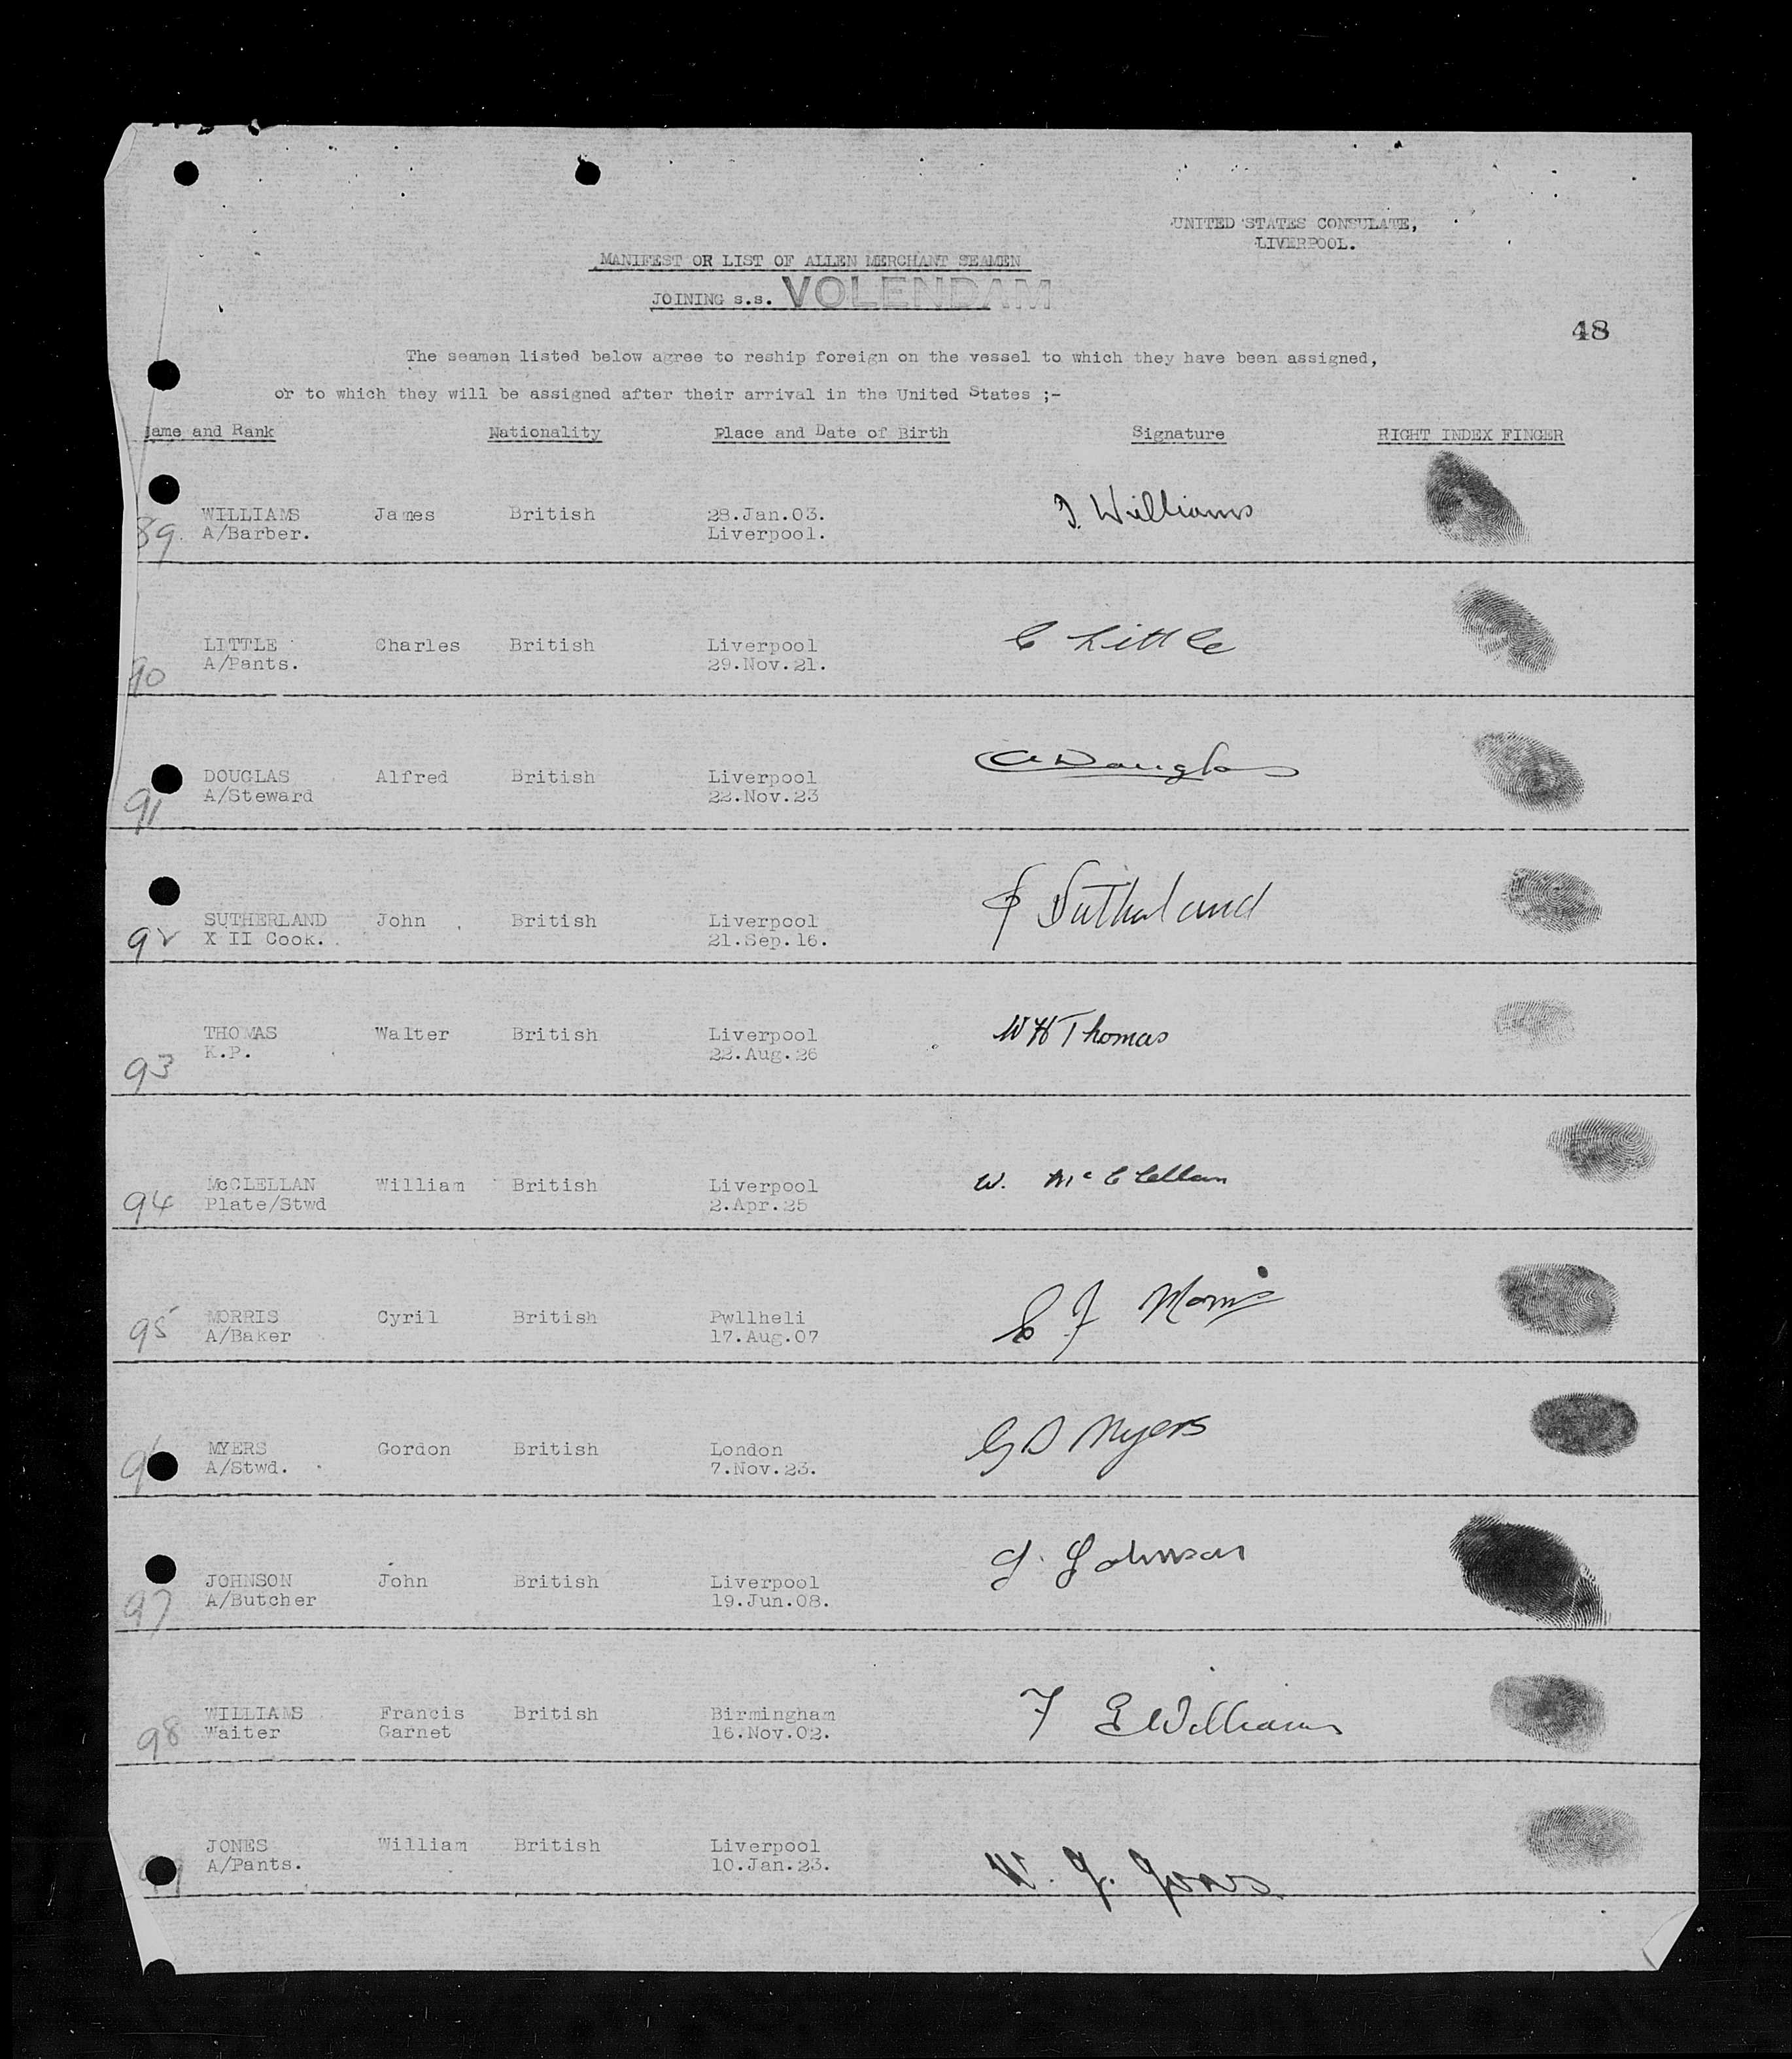 UNITED STATES CONSULATE,
LIVERPOOL.
MANIFEST OR LIST OF ALIEN MERCHANT SEAMEN
JOINING s.s. VOLENDAM
48
The seamen listed below agree to reship foreign on the vessel to which they have been assigned,
or to which they will be assigned after their arrival in the United States ;-
Name and Rank Nationality Place and Date of Birth Signature RIGHT INDEX FINGER
WILLIAMS James British 28.Jan.03. J. Williams
89. A/Barber. Liverpool.
LITTLE Charles British Liverpool C Little
90 A/Pants. 29.Nov.21.
DOUGLAS Alfred British Liverpool A Douglas
91 A/Steward 22.Nov.23
SUTHERLAND John British Liverpool J Sutherland
92 X II Cook. 21.Sep.16.
THOMAS Walter British Liverpool W H Thomas
K.P. 22.Aug.26
93
McCLELLAN William British Liverpool W. McClellan
94 Plate/Stwd 2.Apr.25
MORRIS Cyril British Pwllheli C J Morris
95 A/Baker 17.Aug.07
MYERS Gordon British London G D Myers
9 A/Stwd. 7.Nov.23.
JOHNSON John British Liverpool J. Johnson
97 A/Butcher 19.Jun.08.
WILLIAMS Francis British Birmingham F G Williams
98 Waiter Garnet 16.Nov.02.
JONES William British Liverpool W. J. Jones
99 A/Pants. 10.Jan.23.